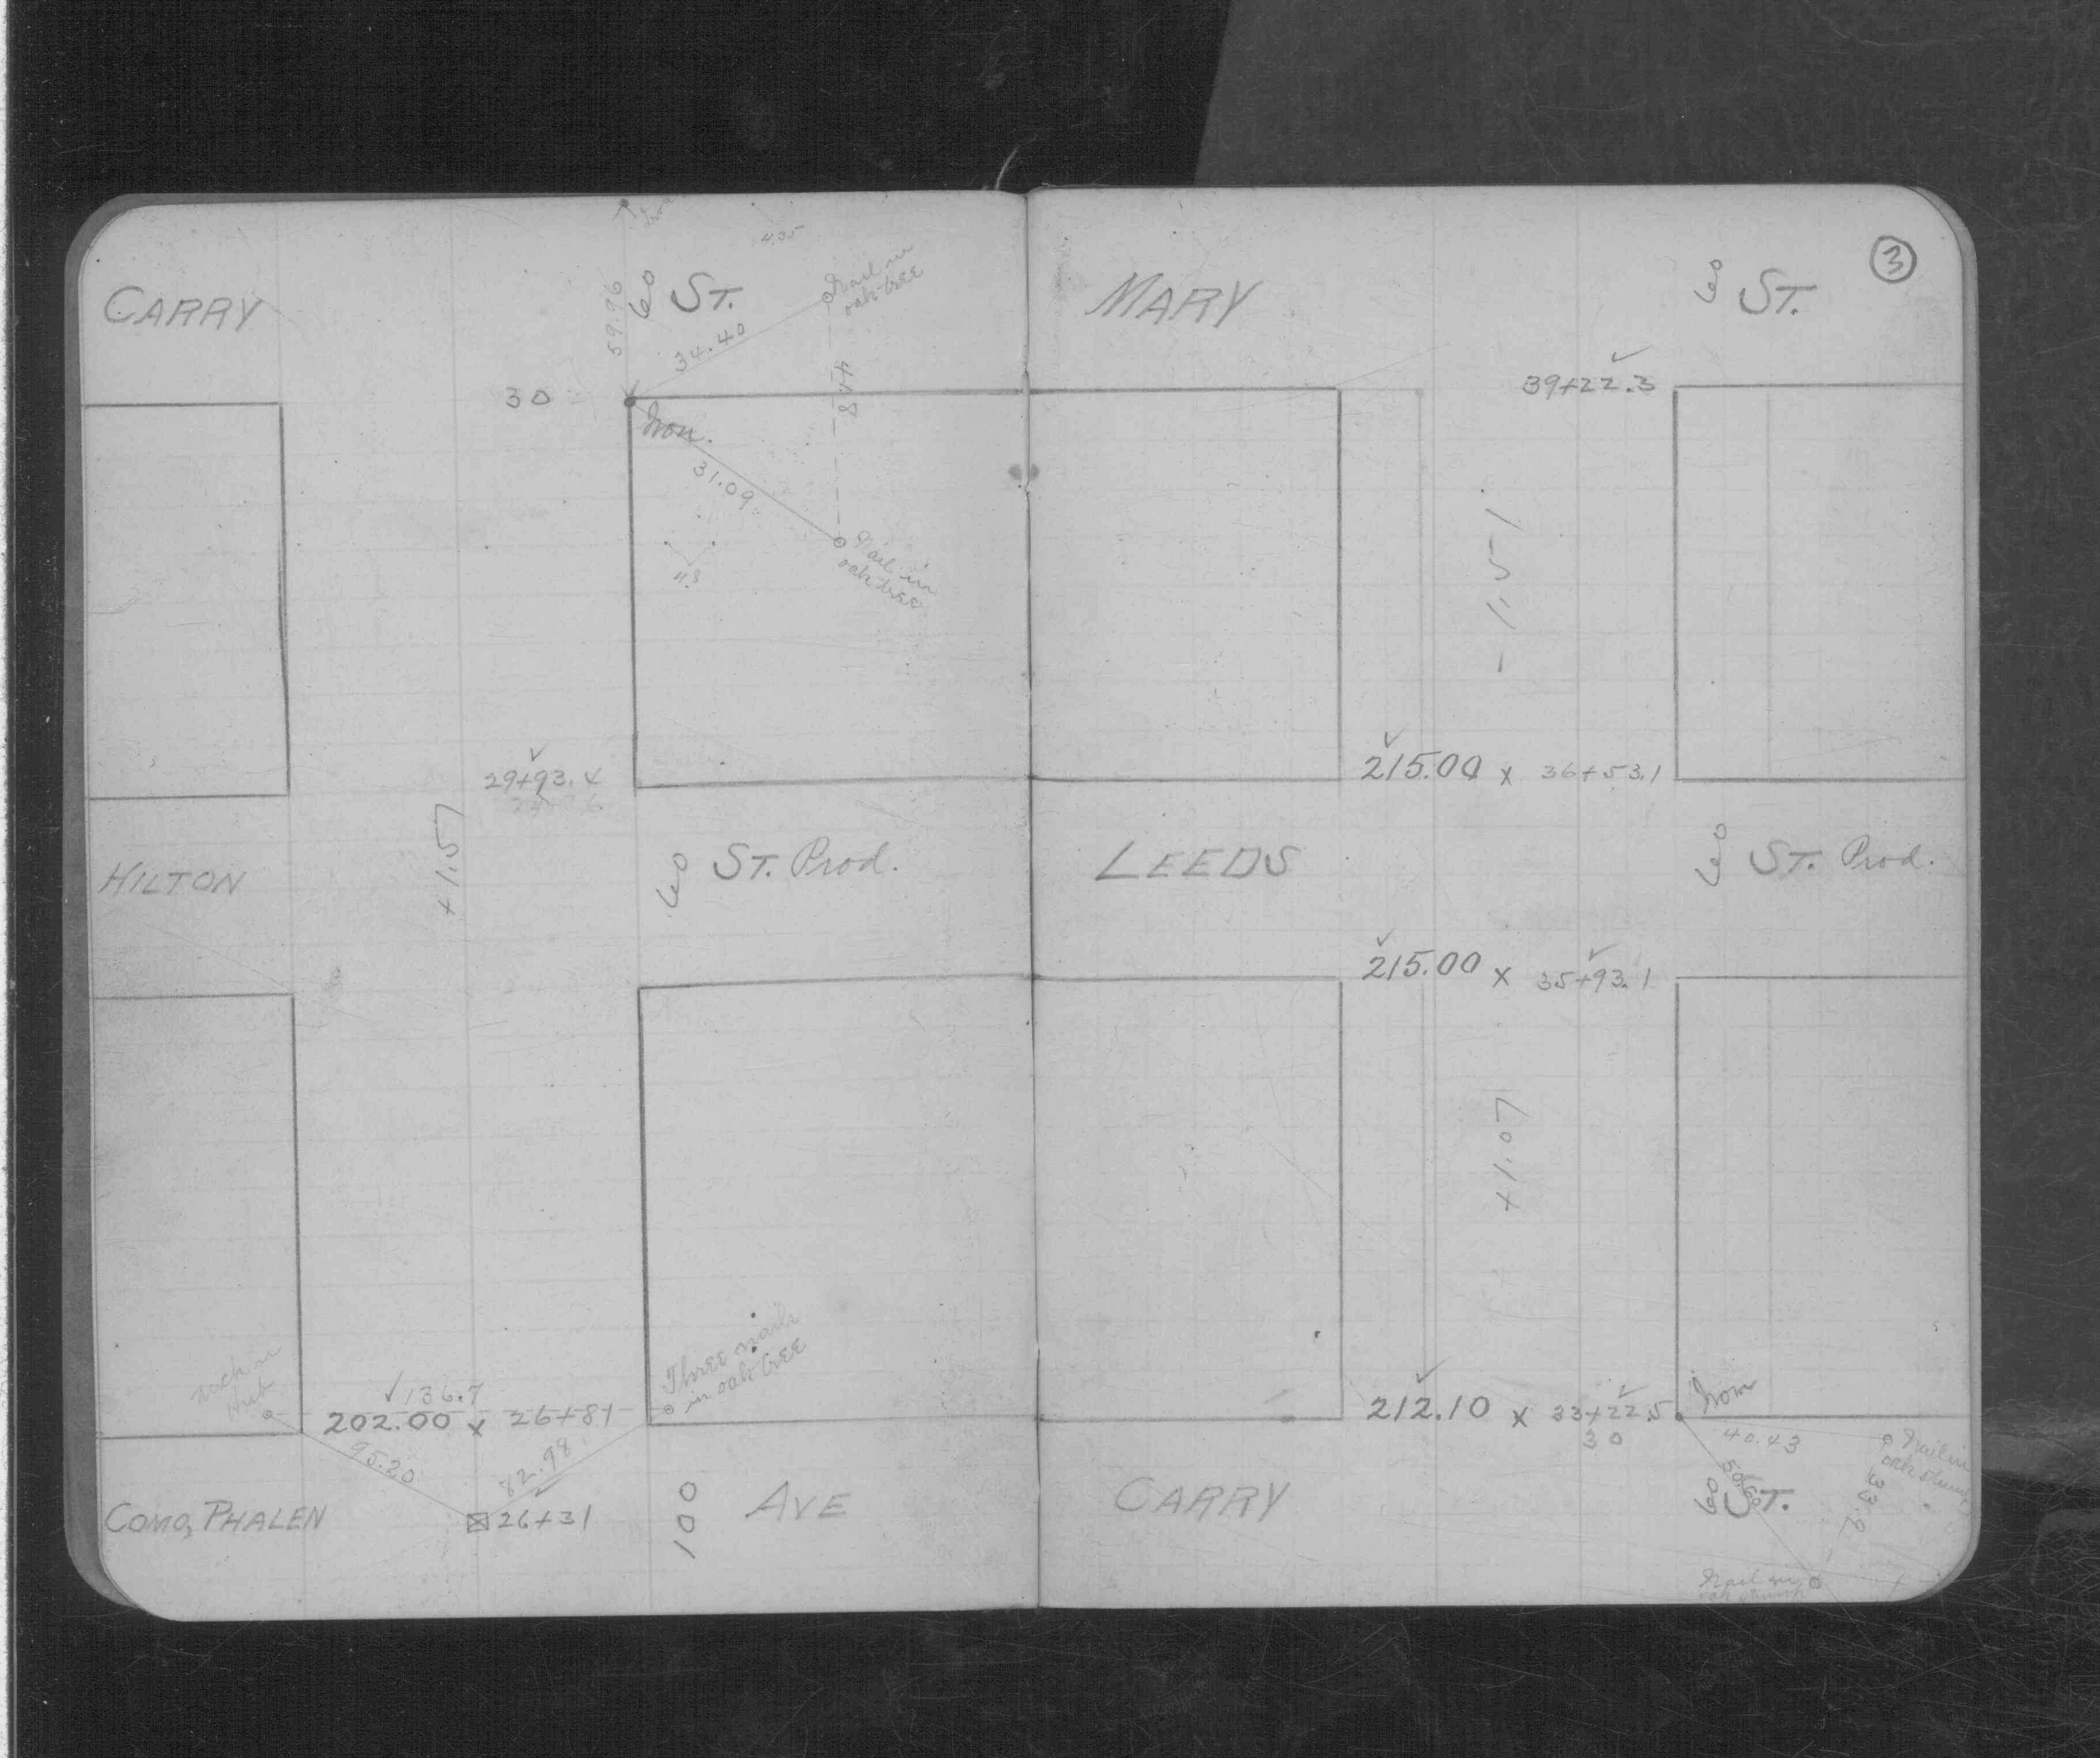 CARRY
60 ST.
59.96
4.35
Nail in
oak tree
34.40
30
44.8
Iron.
31.09
4.8
Nail in
oak tree
29+93.4
+1.57
HILTON
60 ST. Prod.
Three nails
in oak tree
136.7
202.00 x 26+81
95.20
82.98
COMO, PHALEN
26+31
100
AVE
3
MARY
60 ST.
39+22.3
- 1.51
215.00 x 36+53.1
LEEDS
60 ST. Prod.
215.00 x 35+93.1
+1.07
212.10 x 33+22.5
30
Iron
40.43
Nail in
oak stump
CARRY
60 ST.
33.9
Nail in